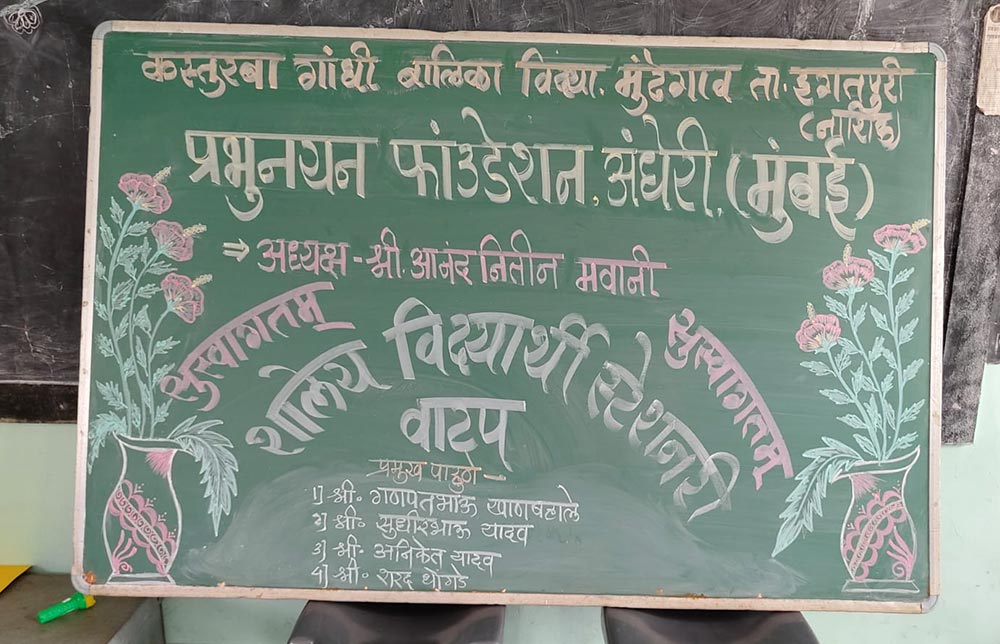 कस्तुरबा गांधी बालिका विद्या. मुंढेगाव ता. इगतपुरी
(नाशिक)
प्रभुनयन फाउंडेशन, अंधेरी. (मुंबई)
⇒ अध्यक्ष - श्री. आनंद नितीन मवानी
सुस्वागतम्
सुस्वागतम्
शालेय विद्यार्थी स्टेशनरी
वाटप
प्रमुख पाहुणे -
1) श्री. गणपतभाऊ
2) श्री. सुधीरभाऊ यादव
3) श्री. अनिकेत यादव
4) श्री. शरद